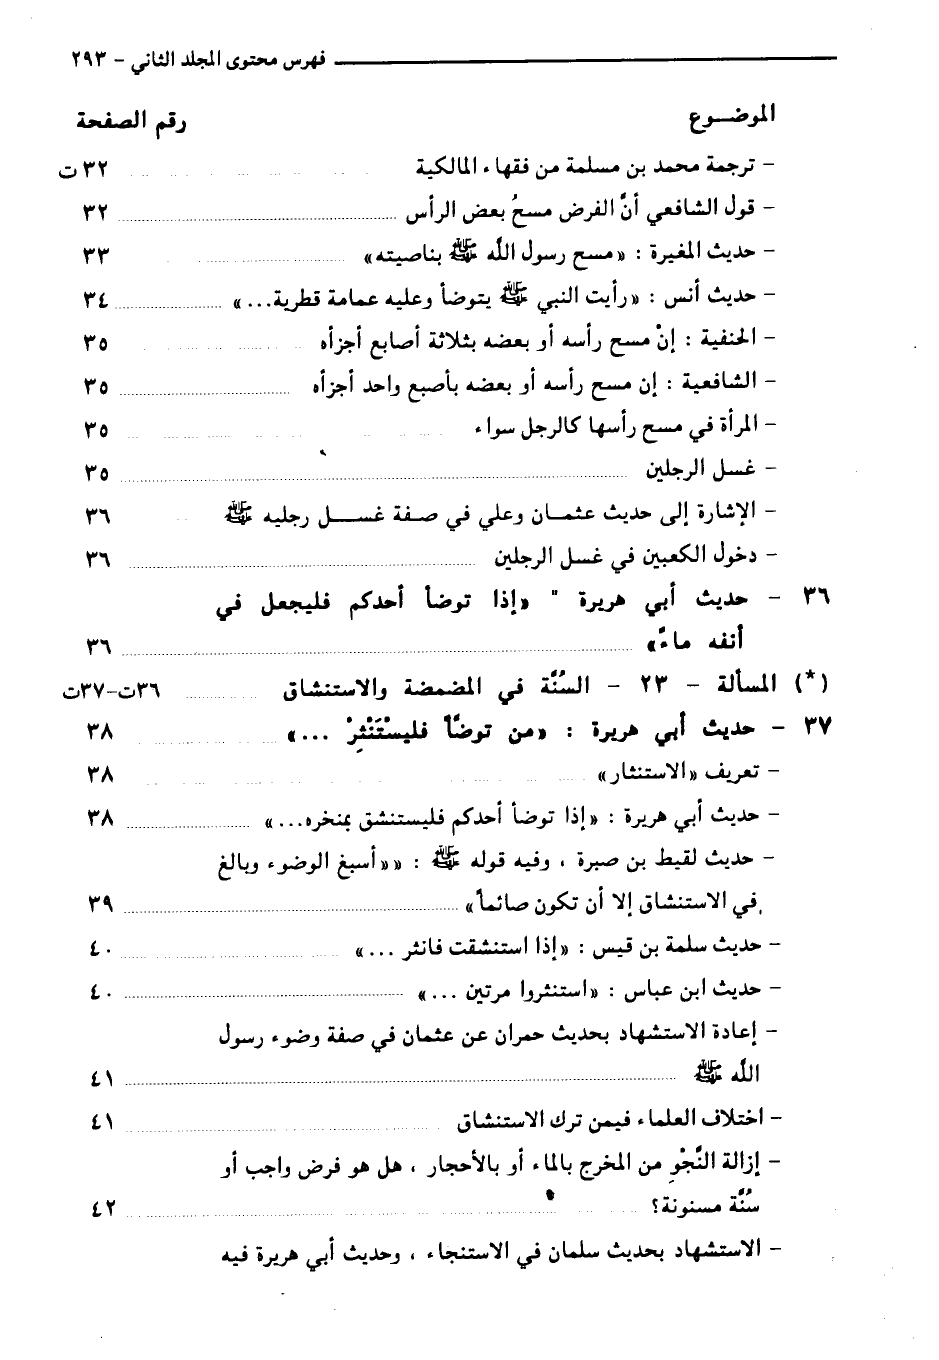 فهرس محتوى المجلد الثاني - ٢٩٣
الموضــوع رقم الصفحة
- ترجمة محمد بن مسلمة من فقهاء المالكية ٣٢ ت
- قول الشافعي أنَّ الفرض مسحُ بعض الرأس ٣٢
- حديث المغيرة : «مسح رسول اللَّه ﷺ بناصيته» ٣٣
- حديث أنس : «رأيت النبي ﷺ يتوضأ وعليه عمامة قطرية...» ٣٤
- الحنفية : إنْ مسح رأسه أو بعضه بثلاثة أصابع أجزأه ٣٥
- الشافعية : إن مسح رأسه أو بعضه بأصبع واحد أجزأه ٣٥
- المرأة في مسح رأسها كالرجل سواء ٣٥
- غسل الرجلين ٣٥
- الإشارة إلى حديث عثمــان وعلي في صفة غســـل رجليه ﷺ ٣٦
- دخول الكعبين في غسل الرجلين ٣٦
٣٦ - حديث أبي هريرة " «إذا توضأ أحدكم فليجعل في
أنفه ماءً» ٣٦
(*) المسألة - ٢٣ - السُنَّة في المضمضة والاستنشاق ٣٦ت-٣٧ت
٣٧ - حديث أبي هريرة : «من توضَّأ فليسْتَنْثِرْ ...» ٣٨
- تعريف «الاستنثار» ٣٨
- حديث أبي هريرة : «إذا توضأ أحدكم فليستنشق بمنخره...» ٣٨
- حديث لقيط بن صبرة ، وفيه قوله ﷺ : ««أسبغ الوضوء وبالغ
في الاستنشاق إلا أن تكون صائماً» ٣٩
- حديث سلمة بن قيس : «إذا استنشقت فانثر ...» ٤٠
- حديث ابن عباس : «استنثروا مرتين ...» ٤٠
- إعادة الاستشهاد بحديث حمران عن عثمان في صفة وضوء رسول
اللَّه ﷺ ٤١
- اختلاف العلماء فيمن ترك الاستنشاق ٤١
- إزالة النَّجْوِ من المخرج بالماء أو بالأحجار ، هل هو فرض واجب أو
سُنَّة مسنونة؟ ٤٢
- الاستشهاد بحديث سلمان في الاستنجاء ، وحديث أبي هريرة فيه